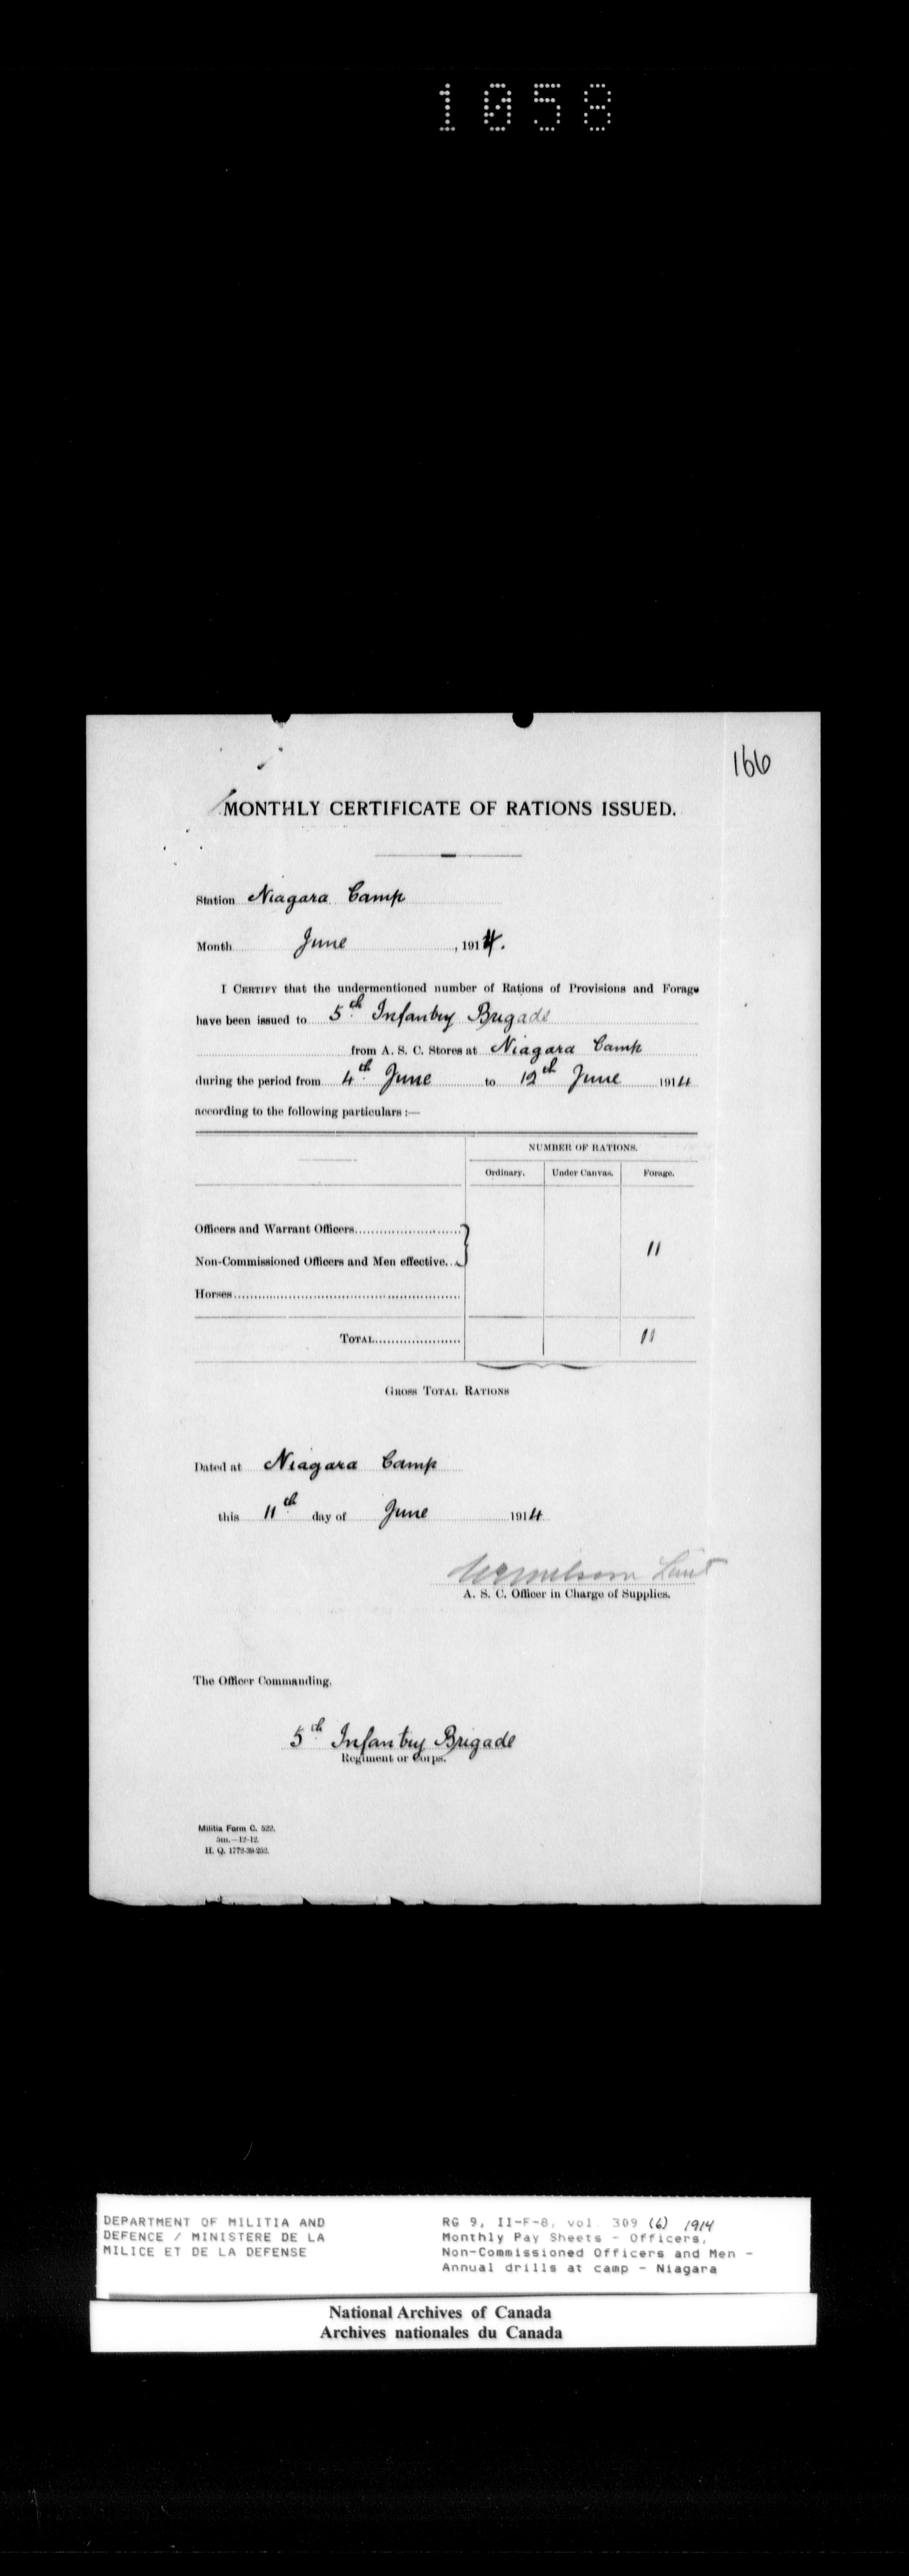 1058
166
MONTHLY CERTIFICATE OF RATIONS ISSUED.
Station Niagara Camp
Month June, 1914.
I CERTIFY that the undermentioned number of Rations of Provisions and Forage
have been issued to 5th Infantry Brigade
from A. S. C. Stores at Niagara Camp
during the period from 4th June to 12th June 1914
according to the following particulars :—
NUMBER OF RATIONS.
Ordinary. Under Canvas. Forage.
Officers and Warrant Officers
Non-Commissioned Officers and Men effective.
11
Horses
TOTAL 11
GROSS TOTAL RATIONS
Dated at Niagara Camp
this 11th day of June 1914
Lieut
A. S. C. Officer in Charge of Supplies.
The Officer Commanding,
5th Infantry Brigade
Regiment or Corps.
Militia Form C. 522.
5m.—12-12.
H. Q. 1772-39-252.
DEPARTMENT OF MILITIA AND
DEFENCE / MINISTERE DE LA
MILICE ET DE LA DEFENSE
RG 9, II-F-8, vol. 309 (6) 1914
Monthly Pay Sheets - Officers,
Non-Commissioned Officers and Men -
Annual drills at camp - Niagara
National Archives of Canada
Archives nationales du Canada